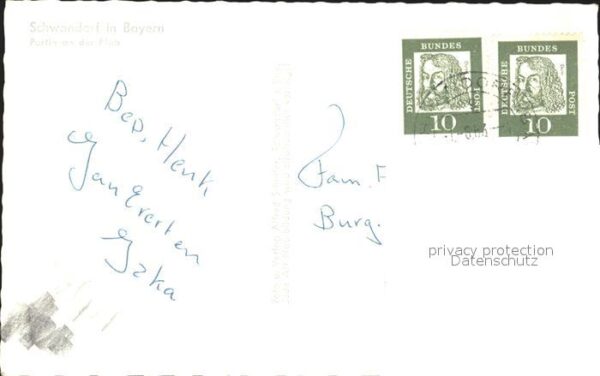 Schwandorf in Bayern
Partie an der Naab
Bep, Henk
Jan Evert en
Fam. F
Burg.
DEUTSCHE
BUNDES
POST
10
DEUTSCHE
BUNDES
POST
10
privacy protection
Datenschutz